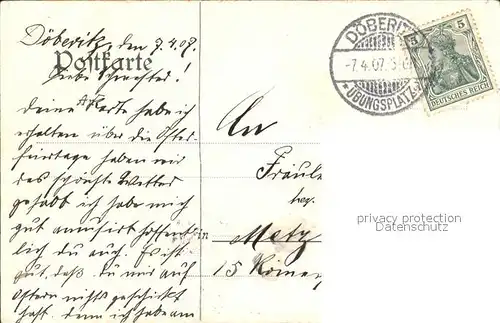 Döberitz, den 7.4.07.
Postkarte
Liebe Schwester!
Deine Karte habe ich
erhalten über die Oster-
feiertage haben wir
das schönste Wetter
gehabt ich habe mich
gut amüsirt hoffent-
lich du auch. Es ist
gut, daß du mir auf
Ostern nichts geschickt
hast. denn ich habe am
An
Fräule
in Metz
15 Römer
DÖBERITZ
-7.4.07. 
* ÜBUNGSPLATZ *
5 5
DEUTSCHES REICH
privacy protection
Datenschutz